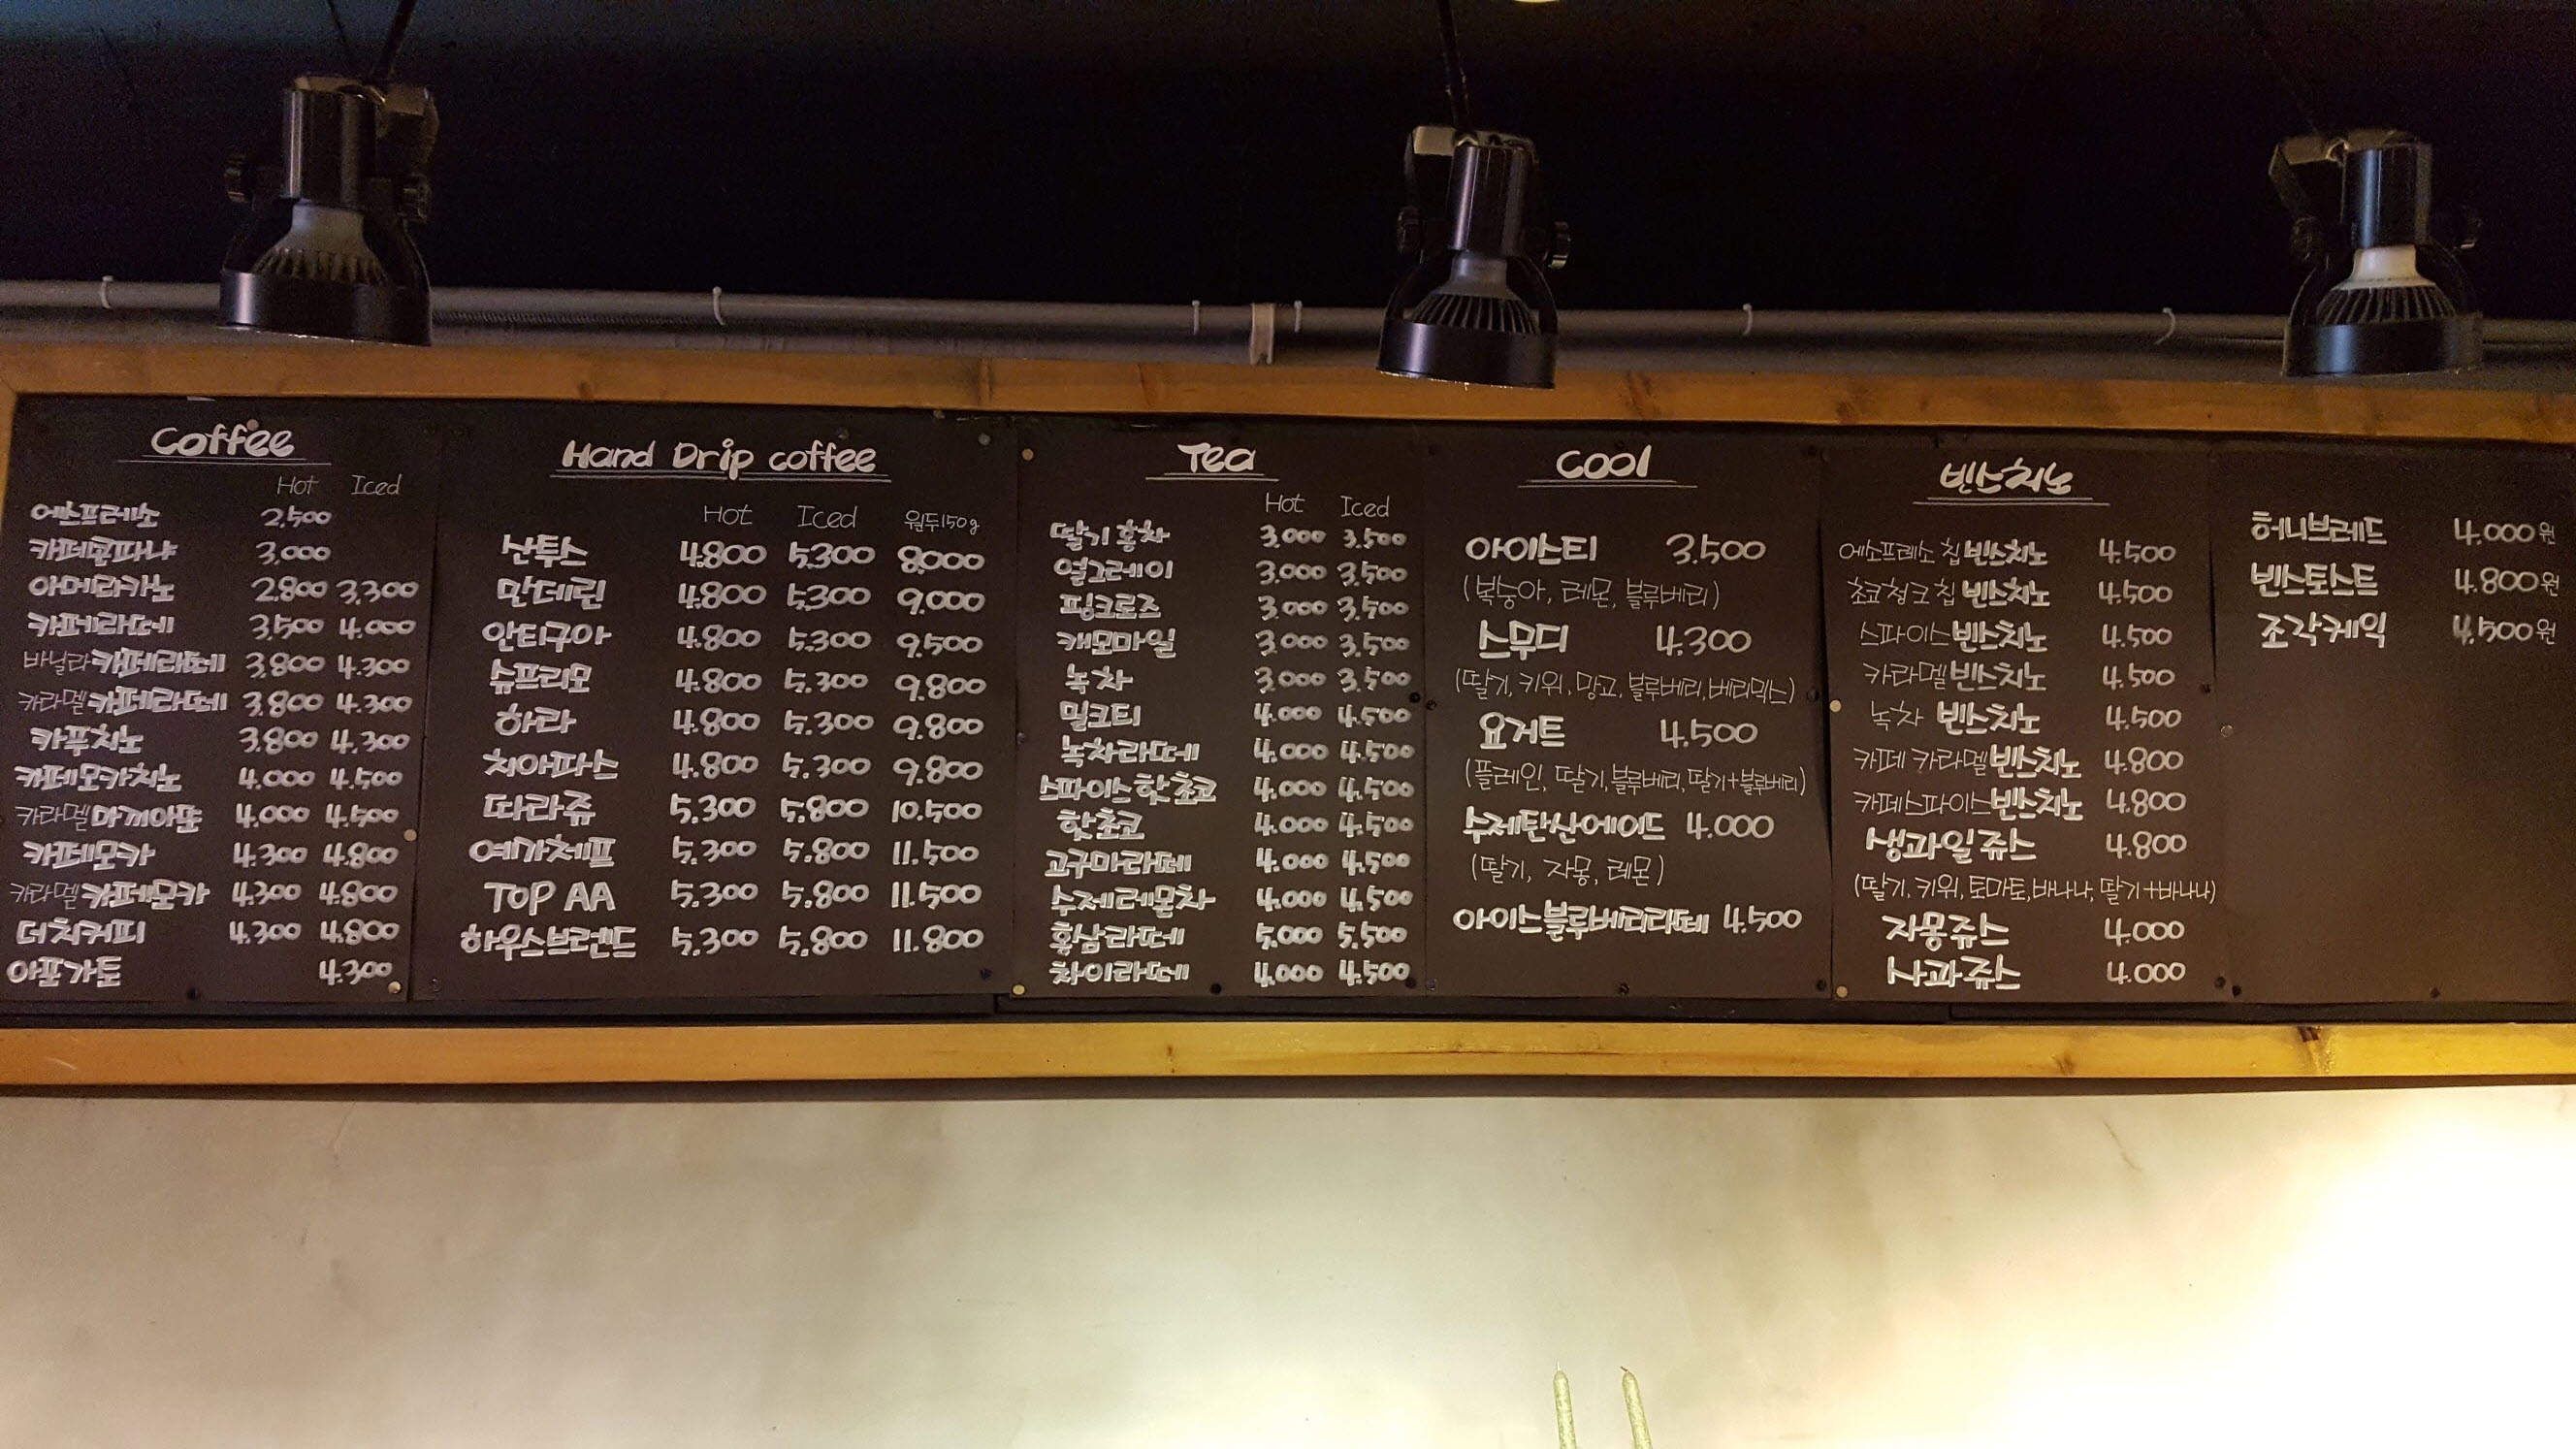 Coffee
Hot Iced
에스프레소 2,500
카페콘파냐 3,000
아메리카노 2.800 3,300
카페라떼 3,500 4.000
바닐라카페라떼 3,800 4.300
카라멜카페라떼 3,800 4.300
카푸치노 3,800 4.300
카페모카치노 4.000 4.500
카라멜마끼아또 4.000 4.500
카페모카 4.300 4.800
카라멜카페모카 4.300 4.800
더치커피 4.300 4.800
아포가토 4.300
Hand Drip coffee
Hot Iced 원두150g
산투스 4.800 5.300 8.000
만데린 4.800 5.300 9.000
안티구아 4.800 5.300 9.500
슈프리모 4.800 5.300 9.800
하라 4.800 5.300 9.800
치아파스 4.800 5.300 9.800
따라쥬 5.300 5.800 10.500
예가체프 5.300 5.800 11.500
TOP AA 5.300 5.800 11.500
하우스브렌드 5.300 5.800 11.800
Tea
Hot Iced
딸기홍차 3.000 3.500
얼그레이 3.000 3.500
핑크로즈 3.000 3.500
캐모마일 3.000 3.500
녹차 3.000 3.500
밀크티 4.000 4.500
녹차라떼 4.000 4.500
스파이스핫초코 4.000 4.500
핫초코 4.000 4.500
고구마라떼 4.000 4.500
수제레몬차 4.000 4.500
홍삼라떼 5.000 5.500
차이라떼 4.000 4.500
Cool
아이스티 3.500
(복숭아, 레몬, 블루베리)
스무디 4.300
(딸기, 키위, 망고, 블루베리, 베리믹스)
요거트 4.500
(플레인, 딸기, 블루베리, 딸기+블루베리)
수제탄산에이드 4.000
(딸기, 자몽, 레몬)
아이스블루베리라떼 4.500
빈스치노
에소프레소 칩 빈스치노 4.500
초코청크칩 빈스치노 4.500
스파이스빈스치노 4.500
카라멜빈스치노 4.500
녹차 빈스치노 4.500
카페 카라멜빈스치노 4.800
카페스파이스빈스치노 4.800
생과일쥬스 4.800
(딸기, 키위, 토마토, 바나나, 딸기+바나나)
자몽쥬스 4.000
사과쥬스 4.000
허니브레드 4.000원
빈스토스트 4.800원
조각케익 4.500원